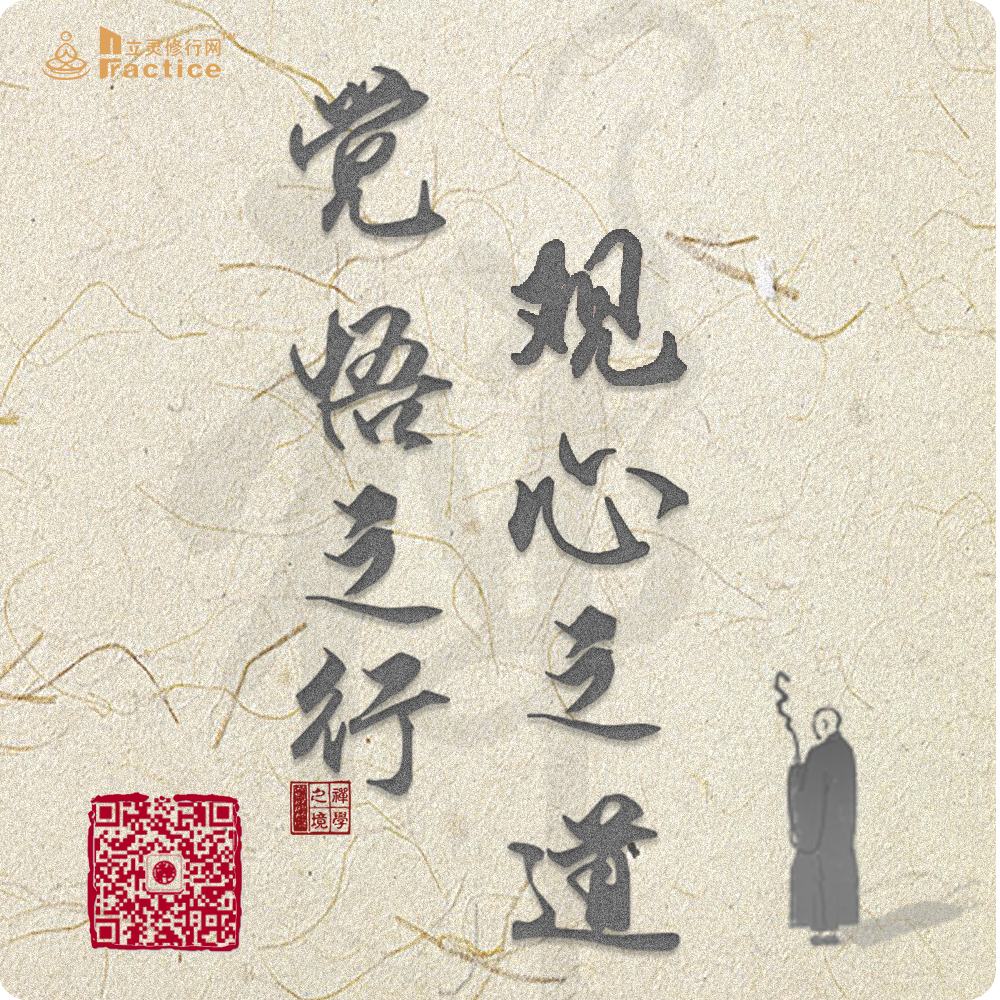 立灵修行网
Practice
观心之道
觉悟之行
禅學
之境